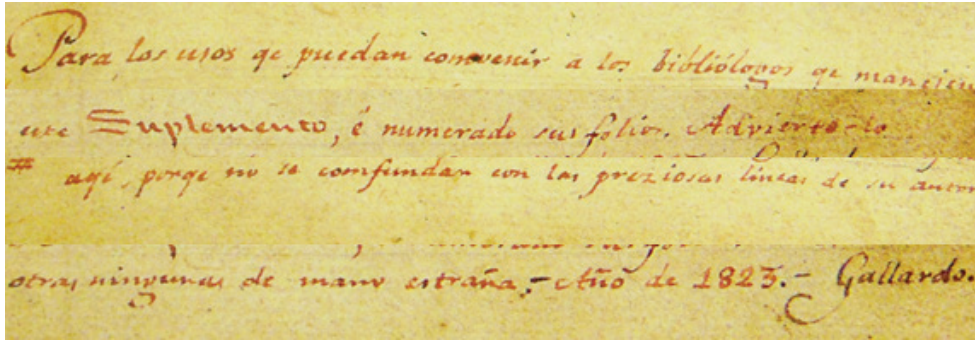 Para los usos qe puedan convenir a los bibliólogos qe manejen
este Suplemento, é numerado sus folios. Advierto-lo
# aqí, porqe no se comfundan con las preziosas líneas de su autor
otras ningunas de mano estraña.- Año de 1823.- Gallardo.